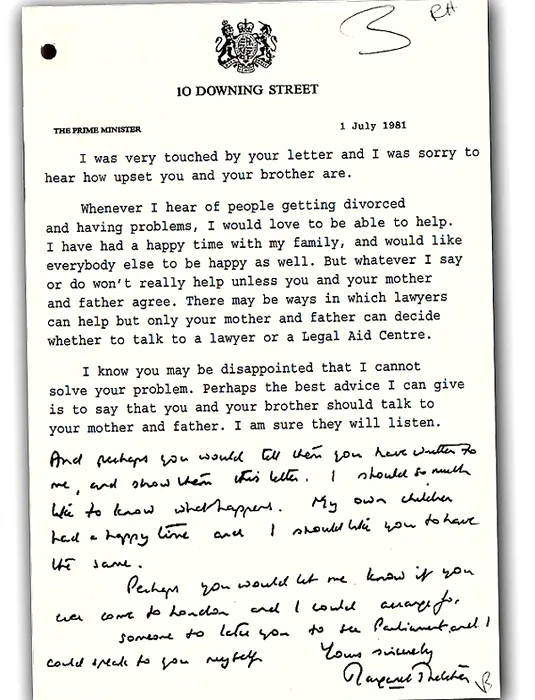 3 RH
10 DOWNING STREET
THE PRIME MINISTER
1 July 1981
I was very touched by your letter and I was sorry to
hear how upset you and your brother are.
Whenever I hear of people getting divorced
and having problems, I would love to be able to help.
I have had a happy time with my family, and would like
everybody else to be happy as well. But whatever I say
or do won't really help unless you and your mother
and father agree. There may be ways in which lawyers
can help but only your mother and father can decide
whether to talk to a lawyer or a Legal Aid Centre.
I know you may be disappointed that I cannot
solve your problem. Perhaps the best advice I can give
is to say that you and your brother should talk to
your mother and father. I am sure they will listen.
And perhaps you would tell them you have written to
me, and show them this letter. I should so much
like to know what happens. My own children
had a happy time and I should like you to have
the same.
Perhaps you would let me know if you
ever come to London and I could arrange for
someone to take you to see Parliament and I
could speak to you myself
Yours sincerely
Margaret Thatcher